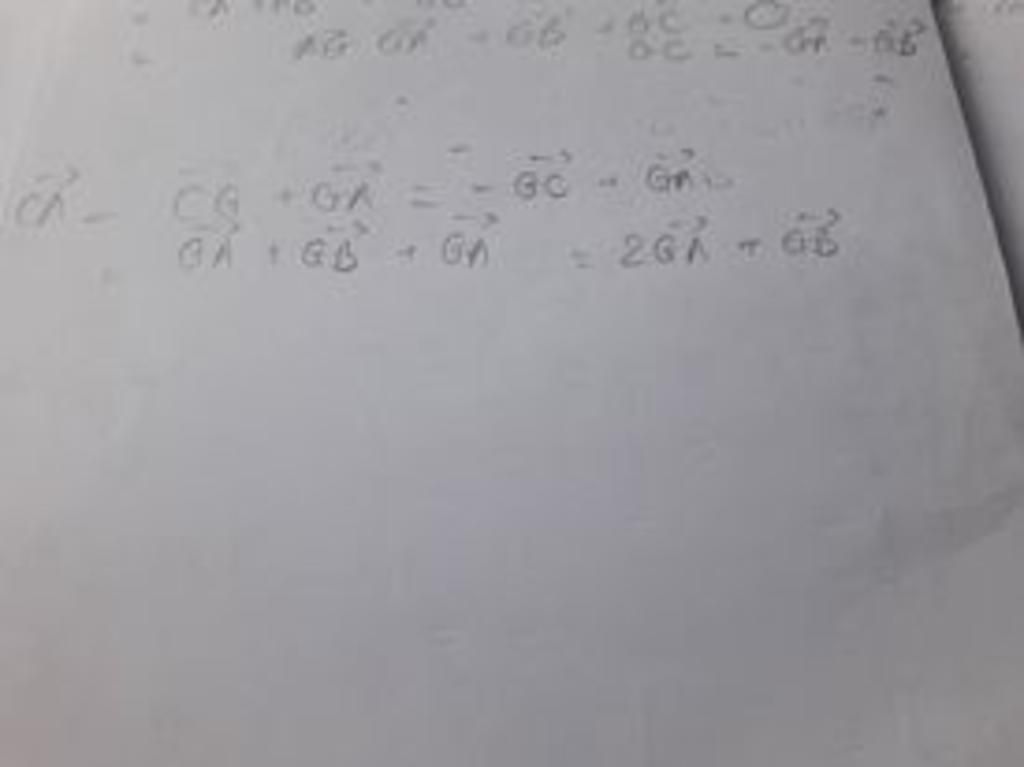 AG GA + GB + GC = O
GC = -GA - GB
CA = CG + GA = - GC + GA =
GA + GB + GA = 2GA + GB